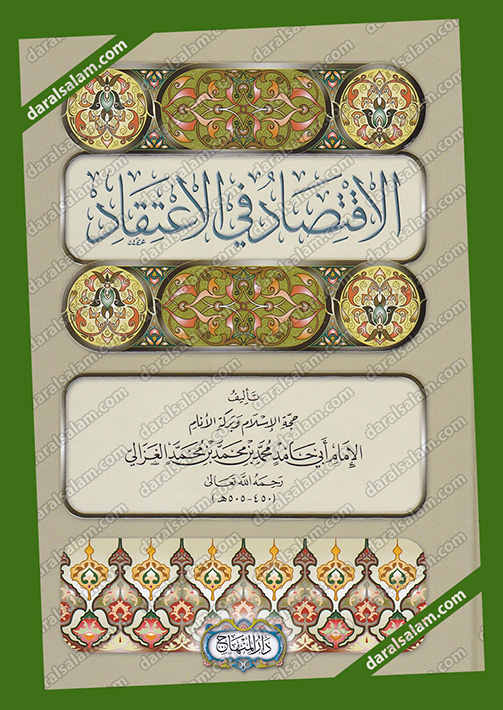 daralsalam.com
الاقتِصَادُ في الاعتِقَادِ
تأليفُ
حجّة الإسلام وبركة الأنام
الإمام أبي حامد محمّد بن محمّد بن محمّد الغزالي
رحمه الله تعالى
(٤٥٠-٥٠٥هـ)
دار المنهاج
daralsalam.com